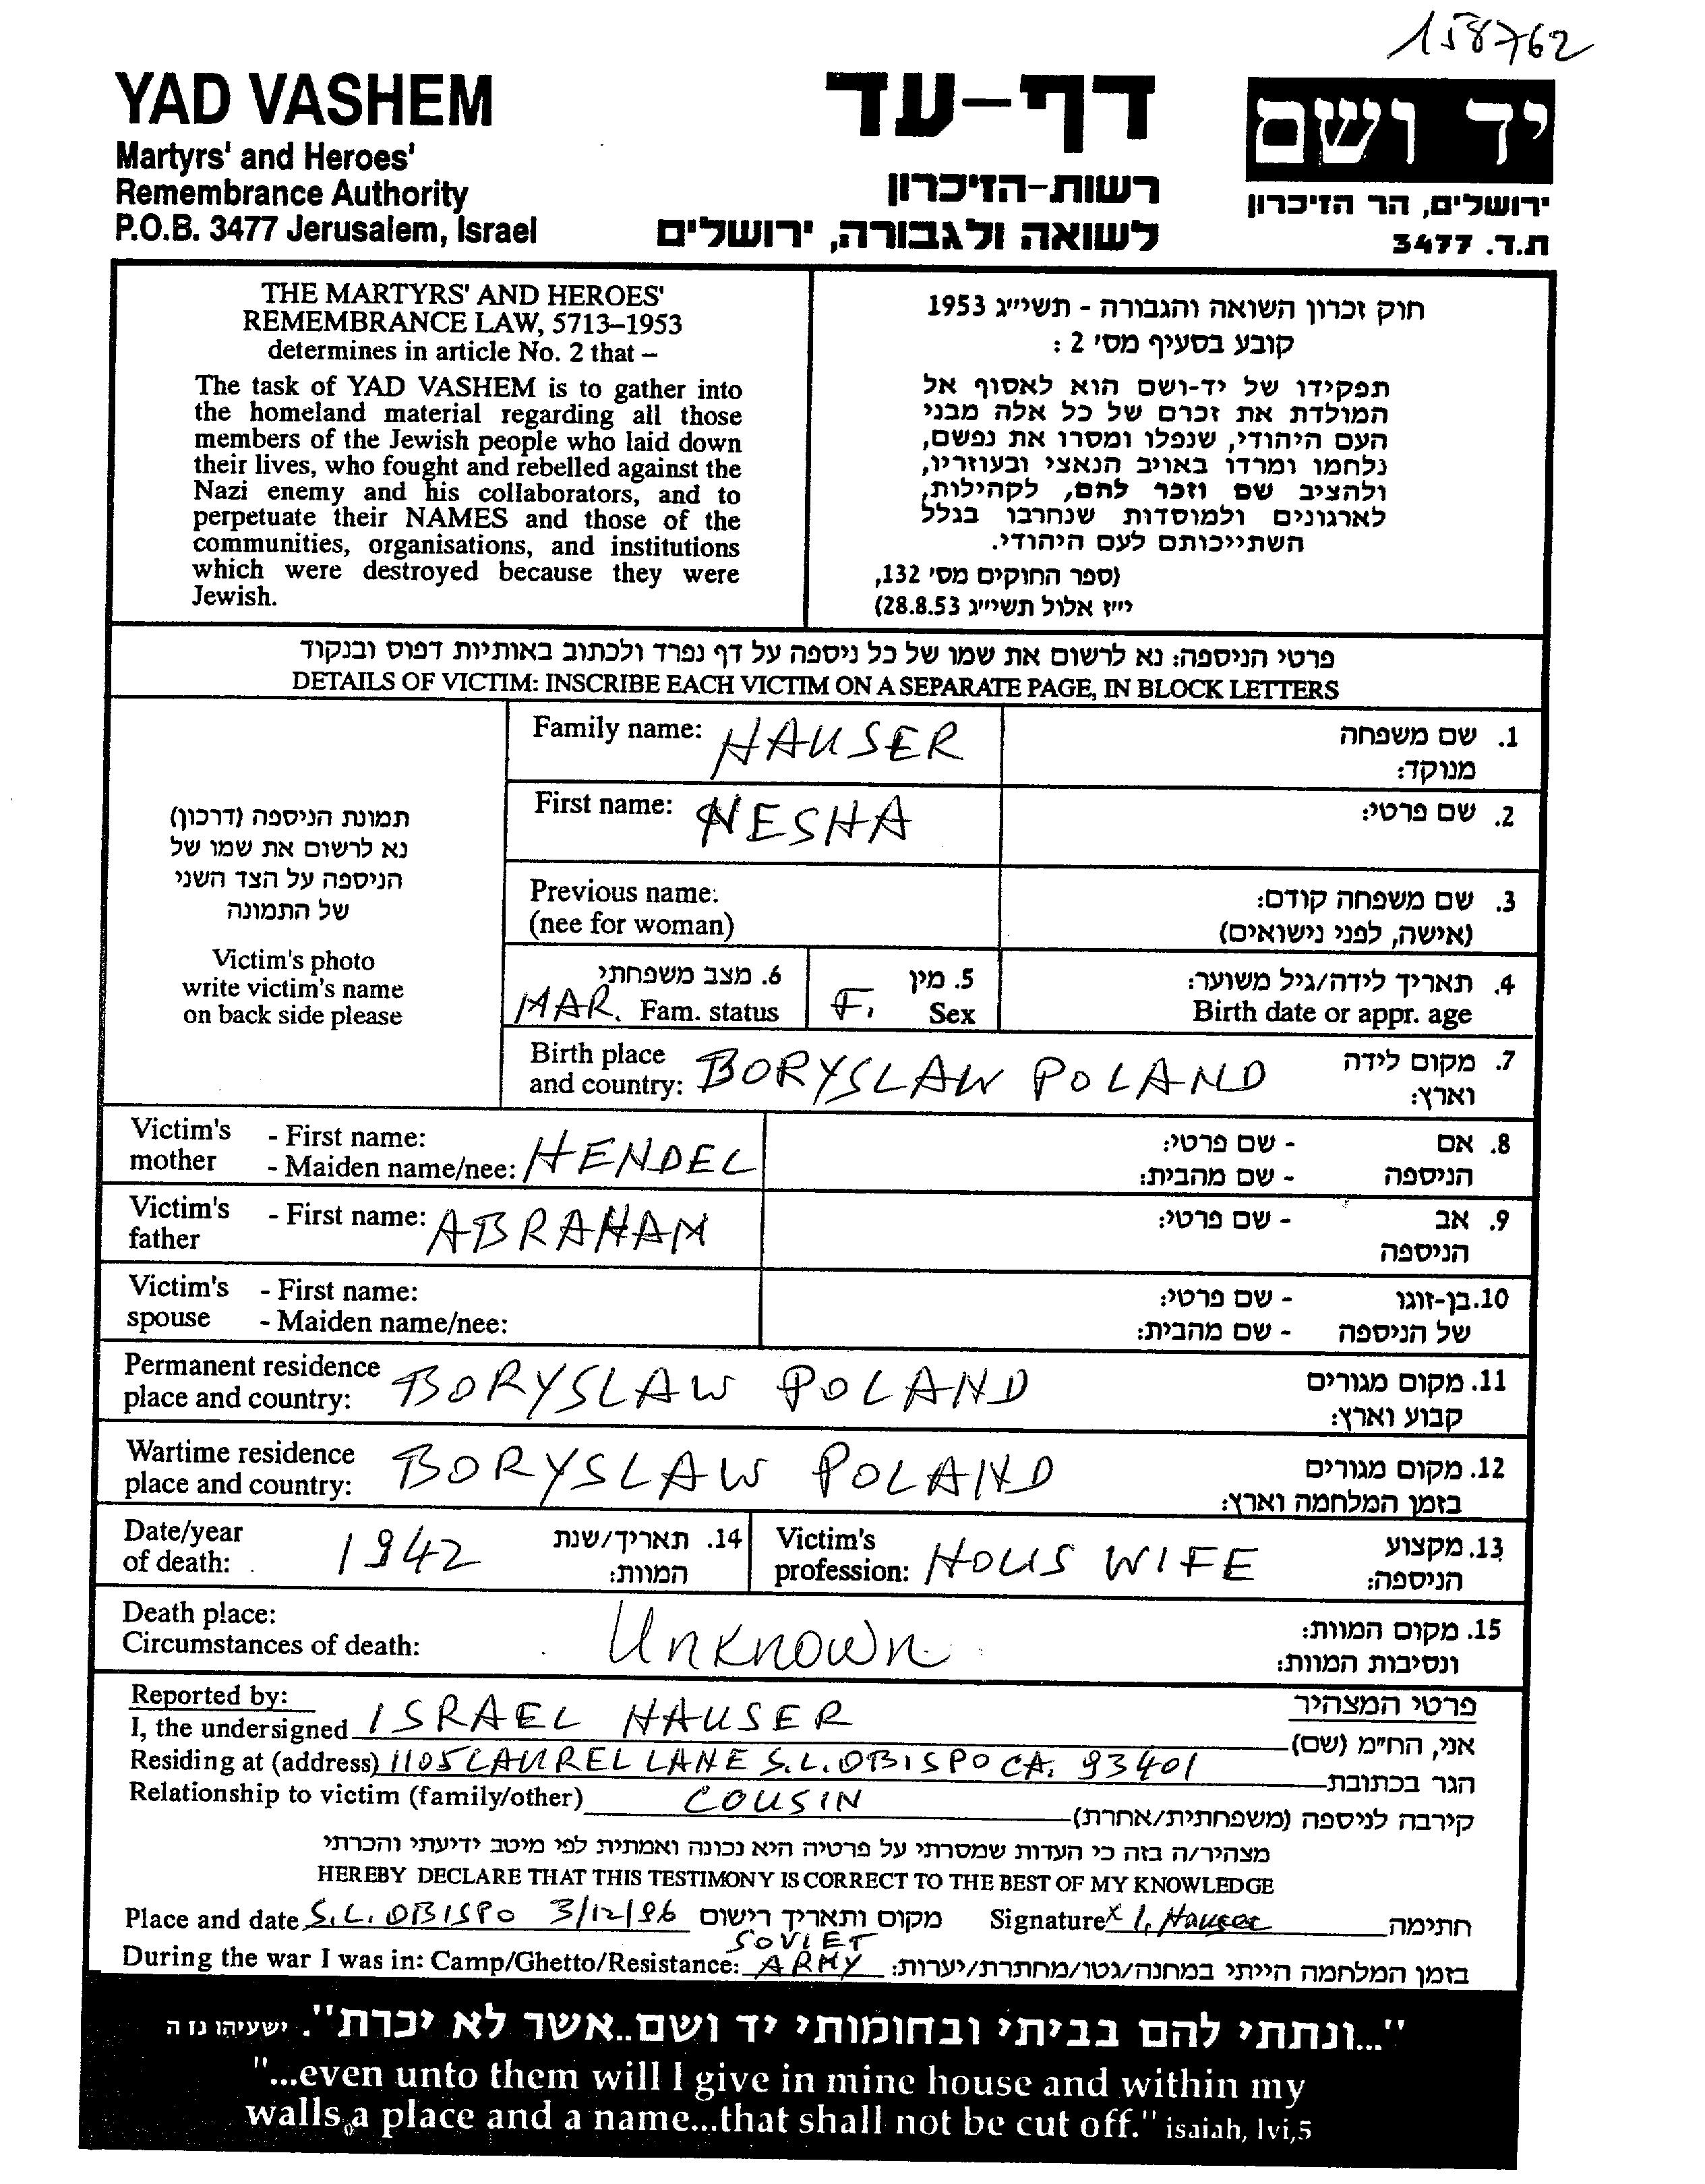 158762
YAD VASHEM
Martyrs' and Heroes'
Remembrance Authority
P.O.B. 3477 Jerusalem, Israel
דף-עד
רשות-הזיכרון
לשואה ולגבורה, ירושלים
יד ושם
ירושלים, הר הזיכרון
ת.ד. 3477
THE MARTYRS' AND HEROES'
REMEMBRANCE LAW, 5713–1953
determines in article No. 2 that –
The task of YAD VASHEM is to gather into
the homeland material regarding all those
members of the Jewish people who laid down
their lives, who fought and rebelled against the
Nazi enemy and his collaborators, and to
perpetuate their NAMES and those of the
communities, organisations, and institutions
which were destroyed because they were
Jewish.
חוק זכרון השואה והגבורה - תשי״ג 1953
קובע בסעיף מס׳ 2 :
תפקידו של יד-ושם הוא לאסוף אל
המולדת את זכרם של כל אלה מבני
העם היהודי, שנפלו ומסרו את נפשם,
נלחמו ומרדו באויב הנאצי ובעוזריו,
ולהציב שם וזכר להם, לקהילות,
לארגונים ולמוסדות שנחרבו בגלל
השתייכותם לעם היהודי.
(ספר החוקים מס׳ 132,
י״ז אלול תשי״ג 28.8.53)
פרטי הניספה: נא לרשום את שמו של כל ניספה על דף נפרד ולכתוב באותיות דפוס ובנקוד
DETAILS OF VICTIM: INSCRIBE EACH VICTIM ON A SEPARATE PAGE, IN BLOCK LETTERS
תמונת הניספה (דרכון)
נא לרשום את שמו של
הניספה על הצד השני
של התמונה
Victim's photo
write victim's name
on back side please
Family name: HAUSER 1. שם משפחה
מנוקד:
First name: NESHA 2. שם פרטי:
Previous name: 3. שם משפחה קודם:
(nee for woman) (אישה, לפני נישואים)
6. מצב משפחתי 5. מין 4. תאריך לידה/גיל משוער:
MAR. Fam. status F. Sex Birth date or appr. age
Birth place 7. מקום לידה
and country: BORYSLAW POLAND וארץ:
Victim's - First name: - שם פרטי: 8. אם
mother - Maiden name/nee: HENDEL - שם מהבית: הניספה
Victim's - First name: ABRAHAM - שם פרטי: 9. אב
father הניספה
Victim's - First name: - שם פרטי: 10. בן-זוגו
spouse - Maiden name/nee: - שם מהבית: של הניספה
Permanent residence 11. מקום מגורים
place and country: BORYSLAW POLAND קבוע וארץ:
Wartime residence 12. מקום מגורים
place and country: BORYSLAW POLAND בזמן המלחמה וארץ:
Date/year 14. תאריך/שנת Victim's 13. מקצוע
of death: 1942 המוות: profession: HOUS WIFE הניספה:
Death place: 15. מקום המוות:
Circumstances of death: Unknown ונסיבות המוות:
Reported by: פרטי המצהיר
I, the undersigned ISRAEL HAUSER אני, הח״מ (שם)
Residing at (address) 1105 LAUREL LANE S.L. OBISPO CA. 93401 הגר בכתובת
Relationship to victim (family/other) COUSIN קירבה לניספה (משפחתית/אחרת)
מצהיר/ה בזה כי העדות שמסרתי על פרטיה היא נכונה ואמתית לפי מיטב ידיעתי והכרתי
HEREBY DECLARE THAT THIS TESTIMONY IS CORRECT TO THE BEST OF MY KNOWLEDGE
Place and date S.L. OBISPO 3/12/96 מקום ותאריך רישום Signature x I. Hauser חתימה
SOVIET
During the war I was in: Camp/Ghetto/Resistance: ARMY בזמן המלחמה הייתי במחנה/גטו/מחתרת/יערות:
"...ונתתי להם בביתי ובחומותי יד ושם..אשר לא יכרת". ישעיהו נז ה
"...even unto them will I give in mine house and within my
walls a place and a name...that shall not be cut off." isaiah, lvi,5